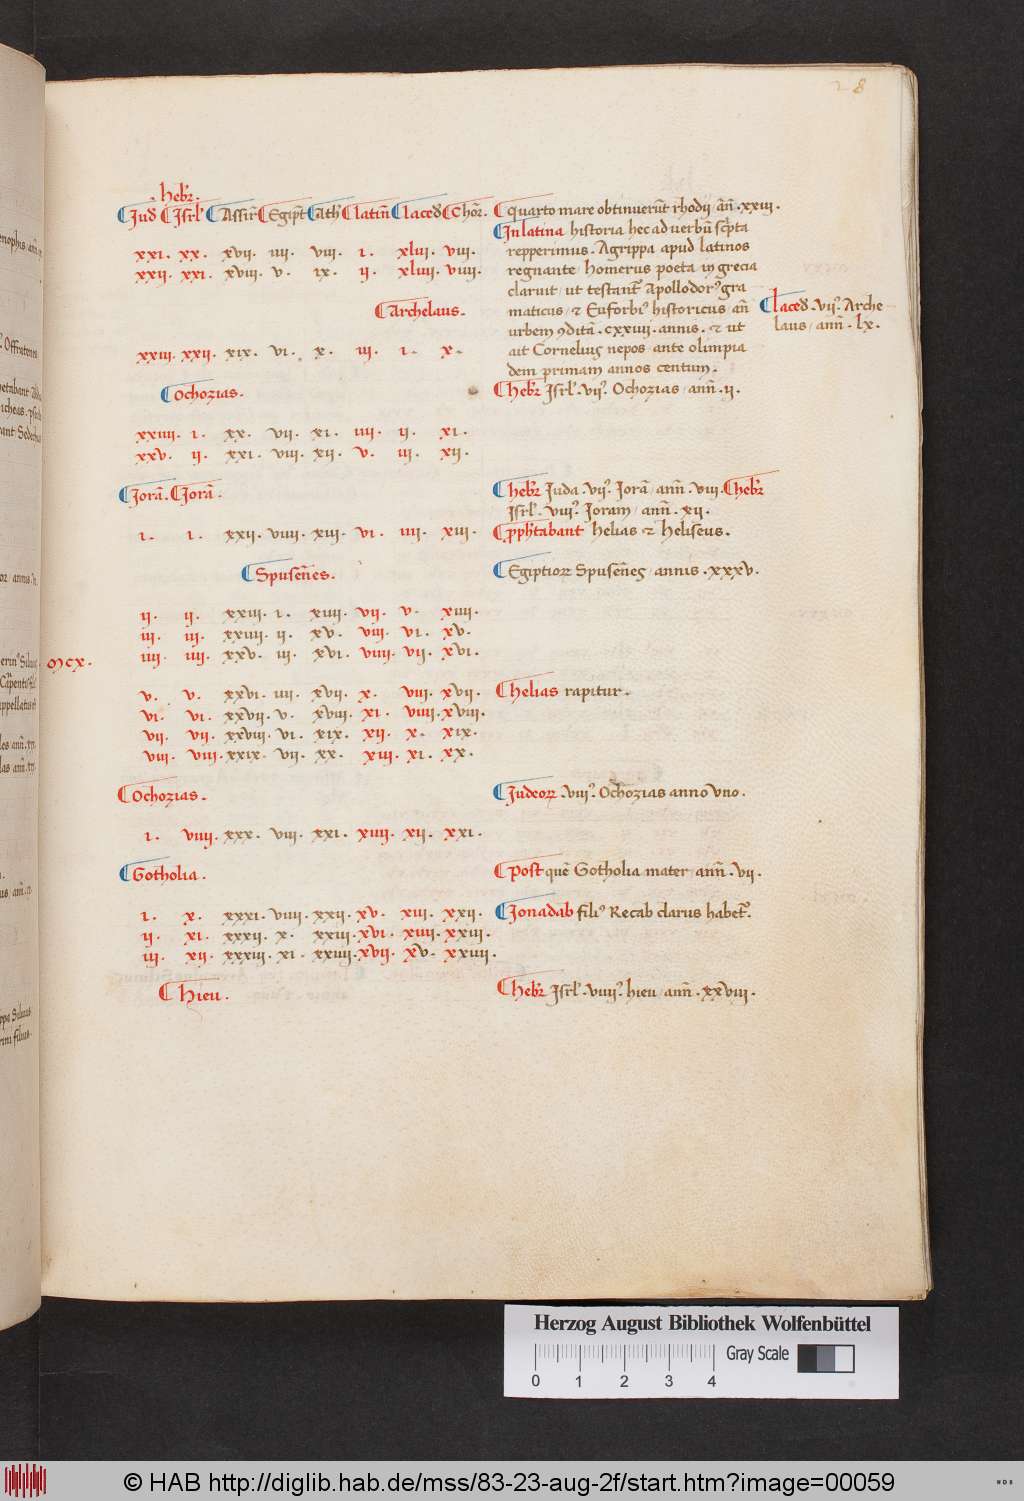 28
hebr̄.
Jud̄ Isrl̓ Assir̄ Egipt̄ Ath̓ latin̄ laced̄ Chōr.
xxi. xx. xvii. iiii. viii. i. xliii. viii.
xxii. xxi. xviii. v. ix. ii. xliiii. viiii.
Archelaus.
xxiii. xxii. xix. vi. x. iii. i. x.
Ochozias.
xxiiii. i. xx. vii. xi. iiii. ii. xi.
xxv. ii. xxi. viii. xii. v. iii. xii.
Jorā. Jorā.
i. i. xxii. viiii. xiii. vi. iiii. xiii.
Spusēnes.
ii. ii. xxiii. i. xiiii. vii. v. xiiii.
iii. iii. xxiiii. ii. xv. viii. vi. xv.
iiii. iiii. xxv. iii. xvi. viiii. vii. xvi.
mcx.
v. v. xxvi. iiii. xvii. x. viii. xvii.
vi. vi. xxvii. v. xviii. xi. viiii. xviii.
vii. vii. xxviii. vi. xix. xii. x. xix.
viii. viii. xxix. vii. xx. xiii. xi. xx.
Ochozias.
i. viiii. xxx. viii. xxi. xiiii. xii. xxi.
Gotholia.
i. x. xxxi. viiii. xxii. xv. xiii. xxii.
ii. xi. xxxii. x. xxiii. xvi. xiiii. xxiii.
iii. xii. xxxiii. xi. xxiiii. xvii. xv. xxiiii.
Hieu.
quarto mare obtinuerūt rhodij. ān̄. xxiii.
In latina historia hec ad uerbū scp̄ta
repperimus. Agrippa apud latinos
regnante, homerus poeta in grecia
claruit, ut testant̄ Apollodor̓ gra
maticus, & Euforbi̓ historicus, an̄
urbem ꝯditā. cxxiiii. annis. & ut
ait Cornelius nepos. ante olimpia
dem primam annos centum.
Laced̄. vii̓. Arche
laus, ann̄. lx.
hebr̄ Isrl̓. vii̓. Ochozias, ann̄. ii.
hebr̄ Juda. vii̓. Jorā, ann̄. viii. hebr̄
Isrl̓. viii̓. Joram, ann̄. xii.
p̄ph̄tabant helias & heliseus.
Egiptioꝝ Spusēnes, annis. xxxv.
helias rapitur.
Judeoꝝ. viii̓. Ochozias anno uno.
Post quē Gotholia, mater, ann̄. vii.
Jonadab fili̓ Recab clarus habet̄.
hebr̄ Isrl̓. viiii̓. hieu, ann̄. xxviii.
Herzog August Bibliothek Wolfenbüttel
Gray Scale
0 1 2 3 4
© HAB http://diglib.hab.de/mss/83-23-aug-2f/start.htm?image=00059